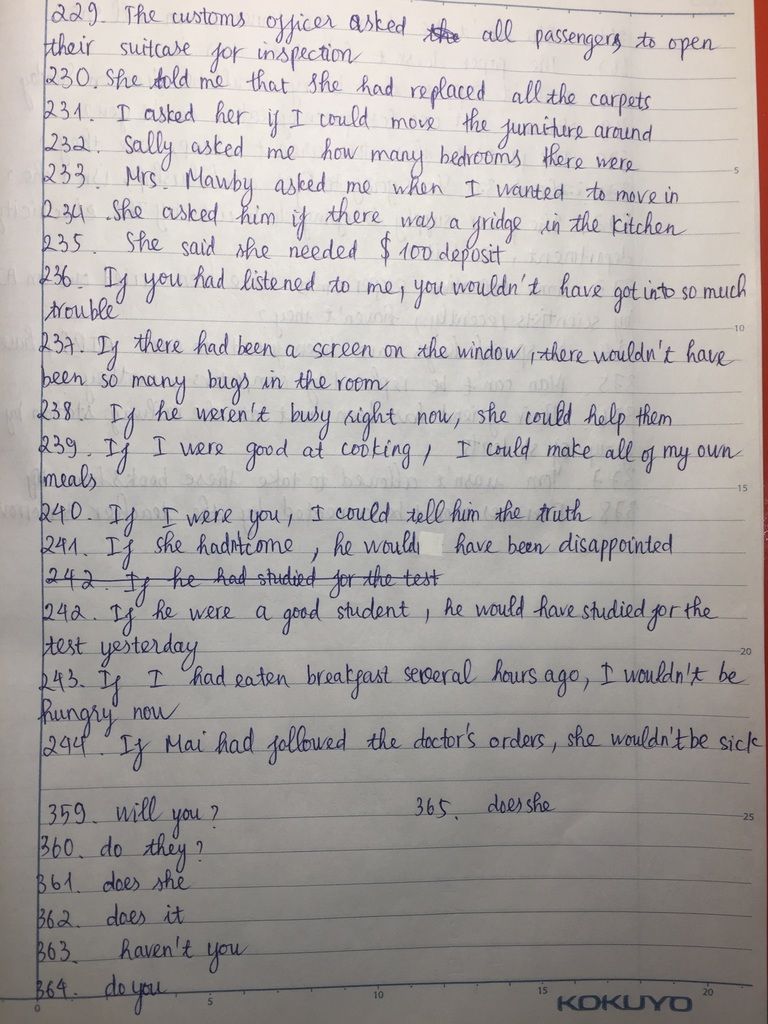 229. The customs officer asked the all passengers to open
their suitcase for inspection
230. She told me that she had replaced all the carpets
231. I asked her if I could move the furniture around
232. Sally asked me how many bedrooms there were
233. Mrs. Mawby asked me when I wanted to move in
234. She asked him if there was a fridge in the kitchen
235. She said she needed $100 deposit
236. If you had listened to me, you wouldn't have got into so much
trouble
237. If there had been a screen on the window, there wouldn't have
been so many bugs in the room
238. If he weren't busy right now, she could help them
239. If I were good at cooking, I could make all of my own
meals
240. If I were you, I could tell him the truth
241. If she hadn't come, he would have been disappointed
242. If he had studied for the test
242. If he were a good student, he would have studied for the
test yesterday
243. If I had eaten breakfast several hours ago, I wouldn't be
hungry now
244. If Mai had followed the doctor's orders, she wouldn't be sick
359. will you? 365. does she
360. do they?
361. does she
362. does it
363. haven't you
364. do you
KOKUYO